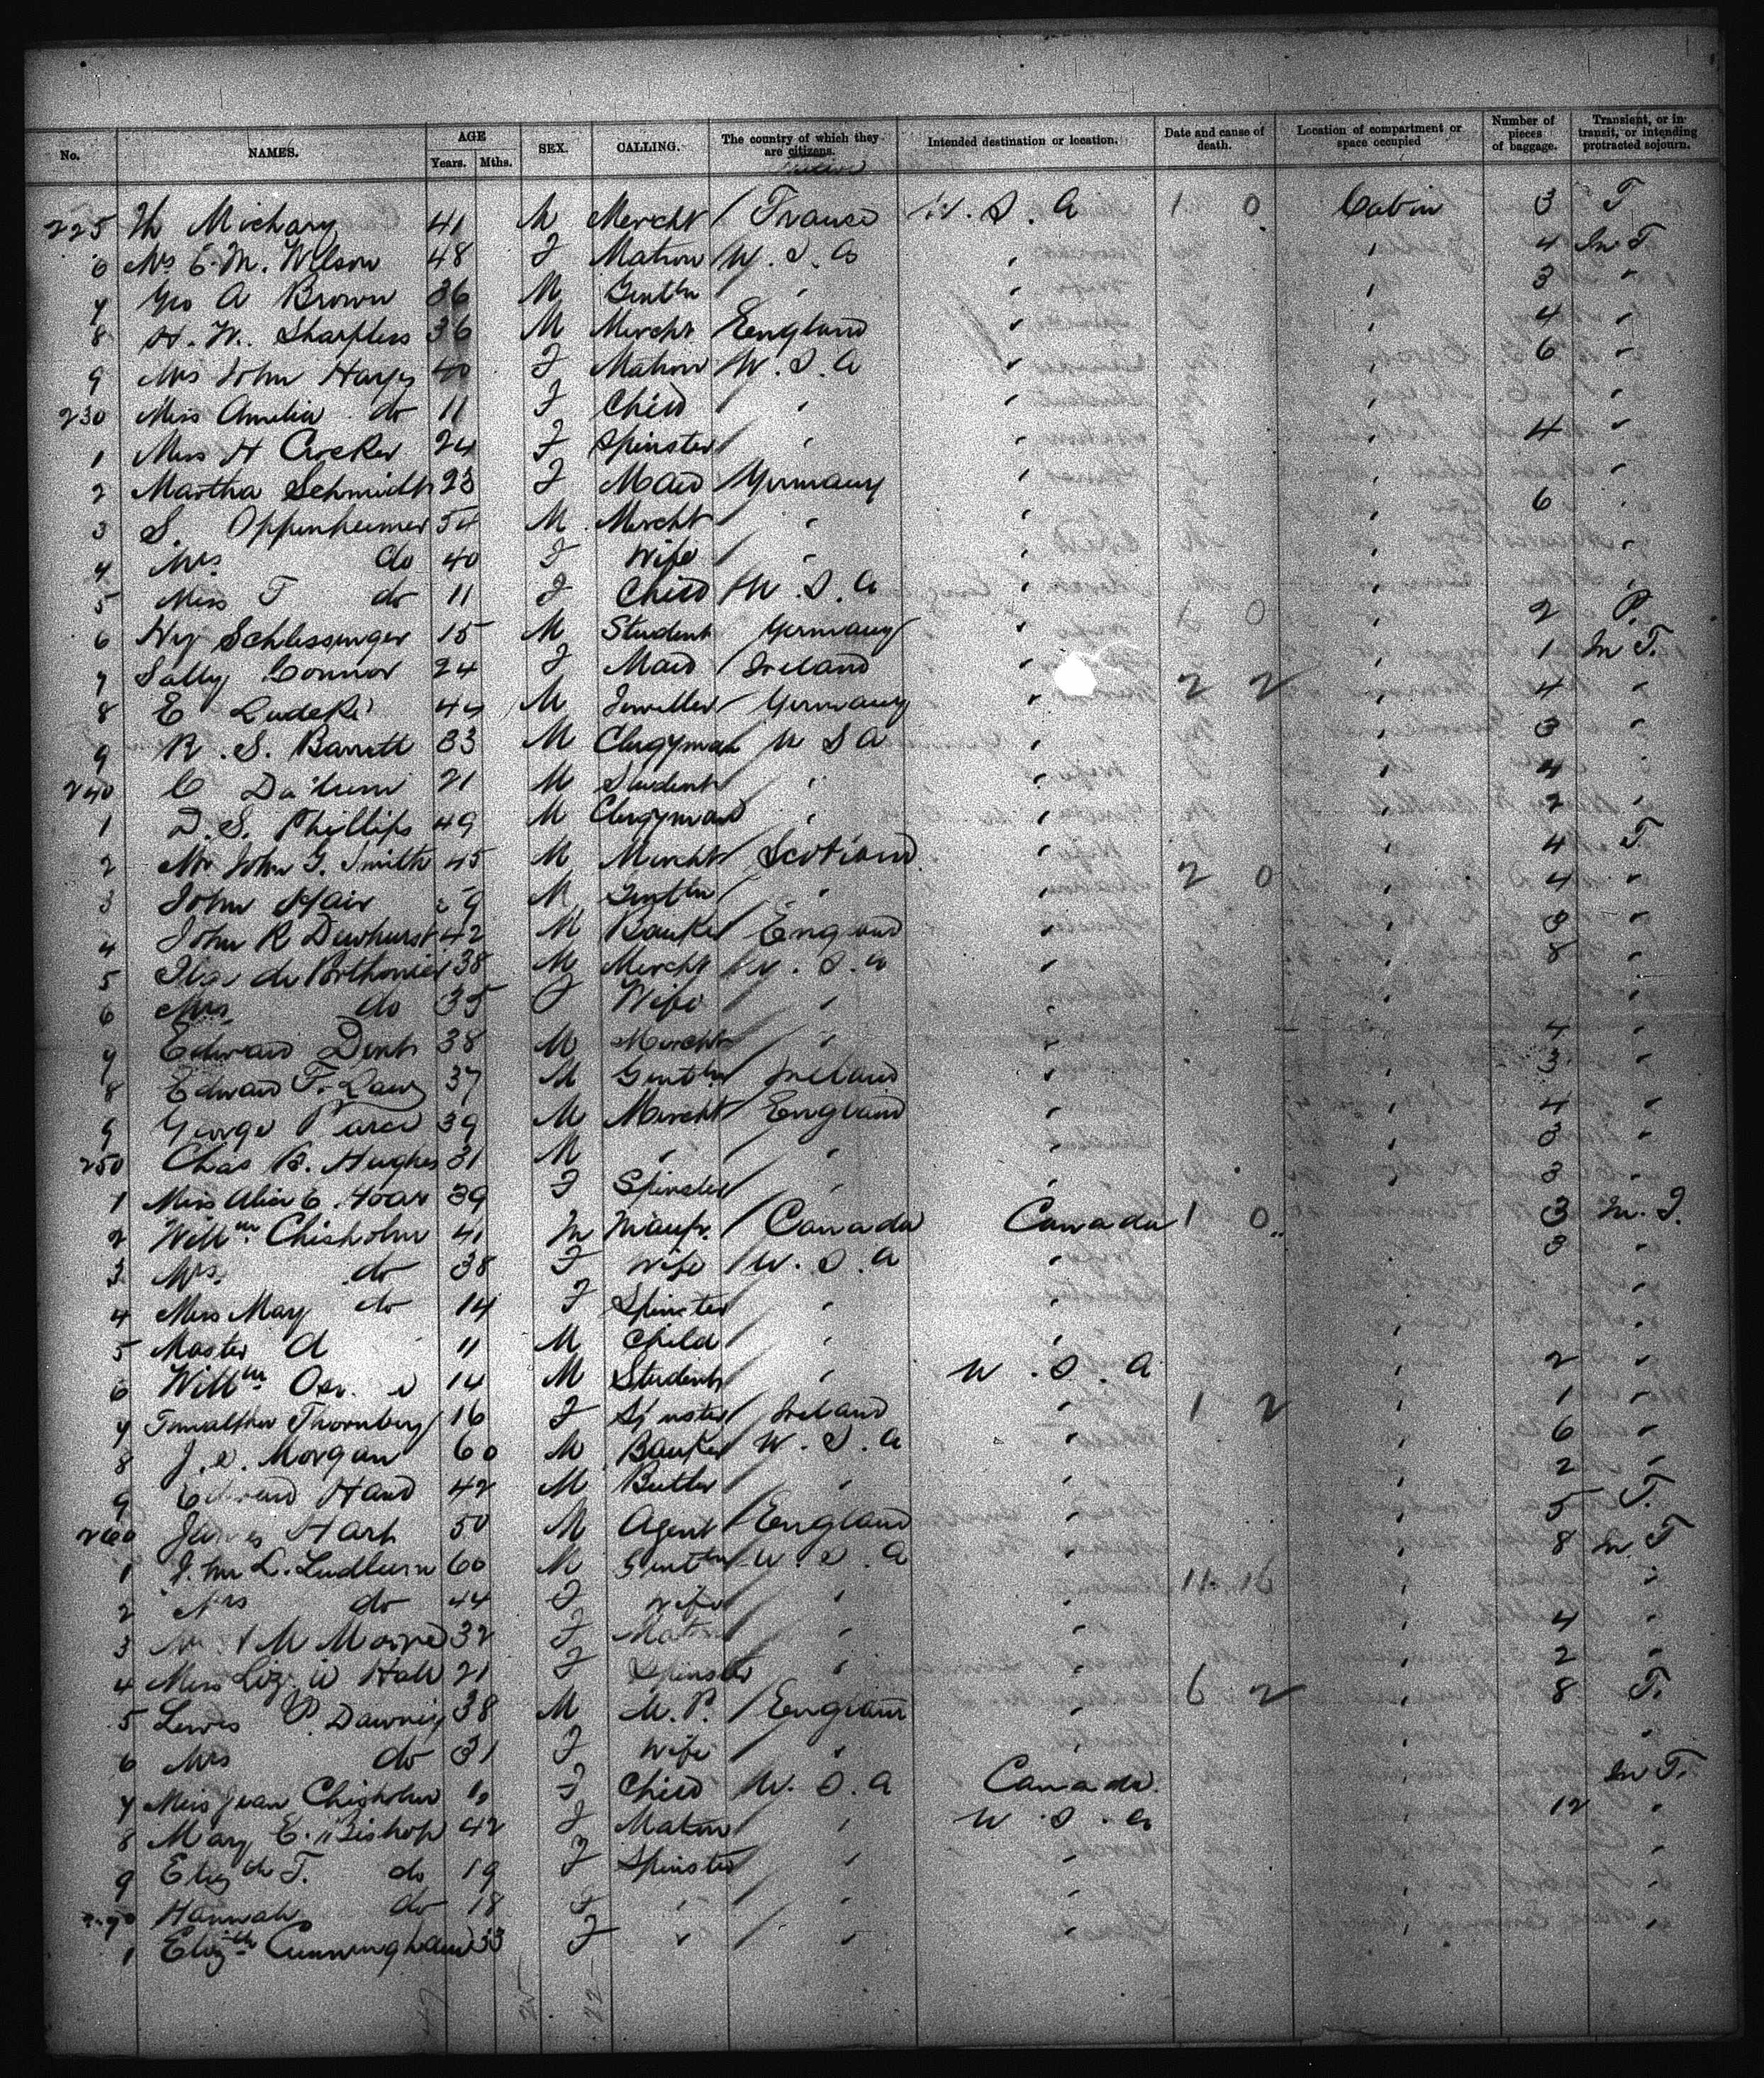 No. NAMES. AGE Years. Mths. SEX. CALLING. The country of which they are citizens. Intended destination or location. Date and cause of death. Location of compartment or space occupied Number of pieces of baggage. Transient, or in transit, or intending protracted sojourn.
225 Th Michary 41 M Mercht / France U.S.A 1 0 Cabin 3 T
6 Mrs E. M. Wilson 48 F Matron / U.S.A " " 4 In T
7 Geo A Brown 36 M Gentln " " " 3 "
8 H. W. Sharpless 36 M Mercht England " " 4 "
9 Mrs John Hayes 40 F Matron U.S.A " " 6 "
230 Miss Amelia do 11 F Child " " " "
1 Miss H Crocker 24 F Spinster / " " " 4 "
2 Martha Schmidt 23 F Maid / Germany " " "
3 S. Oppenheimer 54 M Mercht / " " " 6 "
4 Mrs do 40 F Wife / " " " "
5 Miss T do 11 F Child / U.S.A " " "
6 Hy Schlessinger 15 M Student Germany " 1 0 " 2 P.
7 Sally Connor 24 F Maid / Ireland " " 1 In T.
8 E Ludeke 44 M Jeweller Germany " 2 2 " 4 "
9 R. S. Barrett 33 M Clergyman U S A " " 3 "
240 C 21 M Student / " " " 4 "
1 D. S. Phillips 49 M Clergyman " " " 2 "
2 Mr John G. Smith 45 M Mercht / Scotland " " 4 T.
3 John Mair 9 M Gentln / " " 2 0 " 4 "
4 John R Dewhurst 42 M Banker England " " 3 "
5 de 38 M Mercht / U.S.A " " 8 "
6 Mrs do 35 F Wife / " " " "
7 Edward Dent 38 M Mercht / " " " 4 "
8 Edward F. 37 M Gentln / Ireland " " 3 "
9 George Pearce 39 M Mercht / England " " 4 "
250 Chas B. Hughes 31 M " " " " 3 "
1 Miss Alice E. Hoar 39 F Spinster / " " " 3 "
2 Willm Chisholm 41 M Manfr. / Canada Canada 1 0 " 3 In. T.
3 Mrs. do 38 F Wife / U.S.A " " 3 "
4 Miss May do 14 F Spinster / " " " "
5 Master A 11 M Child / " " " "
6 Willm 14 M Student / " U.S.A " 2 "
7 Thornbury 16 F Spinster / Ireland " 1 2 " 1 "
8 J. Morgan 60 M Banker U.S.A " " 6 "
9 Edward Hand 42 M Butler / " " " 2 "
260 James Hart 50 M Agent / England " " 5 T.
1 L. 60 M Gentln U.S.A " " 8 In T
2 Mrs do 44 F Wife / " " 11 16 " "
3 M 32 F Matron " " " 4 "
4 Miss Hall 21 F Spinster " " " 2 "
5 Lewis P. Dawnay 38 M M.P. / England " 6 2 " 8 T.
6 Mrs do 31 F Wife / " " " "
7 Miss Jean Chisholm F Child U.S.A Canada. " In T.
8 Mary E. Bishop 42 F Matron / " U.S.A " 12 "
9 Elizth T. do 19 F Spinster " " " "
270 Hannah do 18 F " / " " " "
1 Elizth Cunningham 33 F " / " " " "